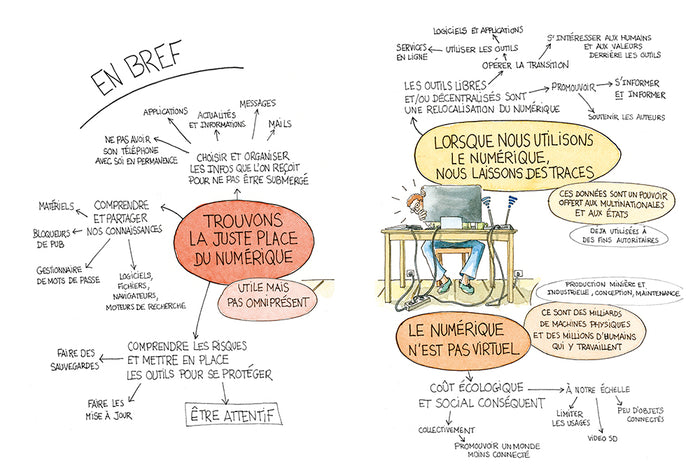 EN BREF
APPLICATIONS
ACTUALITÉS
ET INFORMATIONS
MESSAGES
MAILS
NE PAS AVOIR
SON TÉLÉPHONE
AVEC SOI EN PERMANENCE
CHOISIR ET ORGANISER
LES INFOS QUE L'ON REÇOIT
POUR NE PAS ÊTRE SUBMERGÉ
MATÉRIELS
BLOQUEURS
DE PUB
GESTIONNAIRE
DE MOTS DE PASSE
LOGICIELS,
FICHIERS,
NAVIGATEURS,
MOTEURS DE RECHERCHE
COMPRENDRE
ET PARTAGER
NOS CONNAISSANCES
TROUVONS
LA JUSTE PLACE
DU NUMÉRIQUE
UTILE MAIS
PAS OMNIPRÉSENT
COMPRENDRE LES RISQUES
ET METTRE EN PLACE
LES OUTILS POUR SE PROTÉGER
FAIRE DES
SAUVEGARDES
FAIRE LES
MISE À JOUR
ÊTRE ATTENTIF
LOGICIELS ET APPLICATIONS
SERVICES
EN LIGNE
UTILISER LES OUTILS
S'INTÉRESSER AUX HUMAINS
ET AUX VALEURS
DERRIÈRE LES OUTILS
OPÉRER LA TRANSITION
LES OUTILS LIBRES
ET/OU DÉCENTRALISÉS SONT
UNE RELOCALISATION DU NUMÉRIQUE
PROMOUVOIR
S'INFORMER
ET INFORMER
SOUTENIR LES AUTEURS
LORSQUE NOUS UTILISONS
LE NUMÉRIQUE,
NOUS LAISSONS DES TRACES
CES DONNÉES SONT UN POUVOIR
OFFERT AUX MULTINATIONALES
ET AUX ÉTATS
DEJA UTILISÉES À
DES FINS AUTORITAIRES
PRODUCTION MINIÈRE ET
INDUSTRIELLE, CONCEPTION, MAINTENANCE
CE SONT DES MILLIARDS
DE MACHINES PHYSIQUES
ET DES MILLIONS D'HUMAINS
QUI Y TRAVAILLENT
LE NUMÉRIQUE
N'EST PAS VIRTUEL
COÛT ÉCOLOGIQUE
ET SOCIAL CONSÉQUENT
À NOTRE ÉCHELLE
LIMITER
LES USAGES
VIDÉO SD
PEU D'OBJETS
CONNECTÉS
COLLECTIVEMENT
PROMOUVOIR UN MONDE
MOINS CONNECTÉ